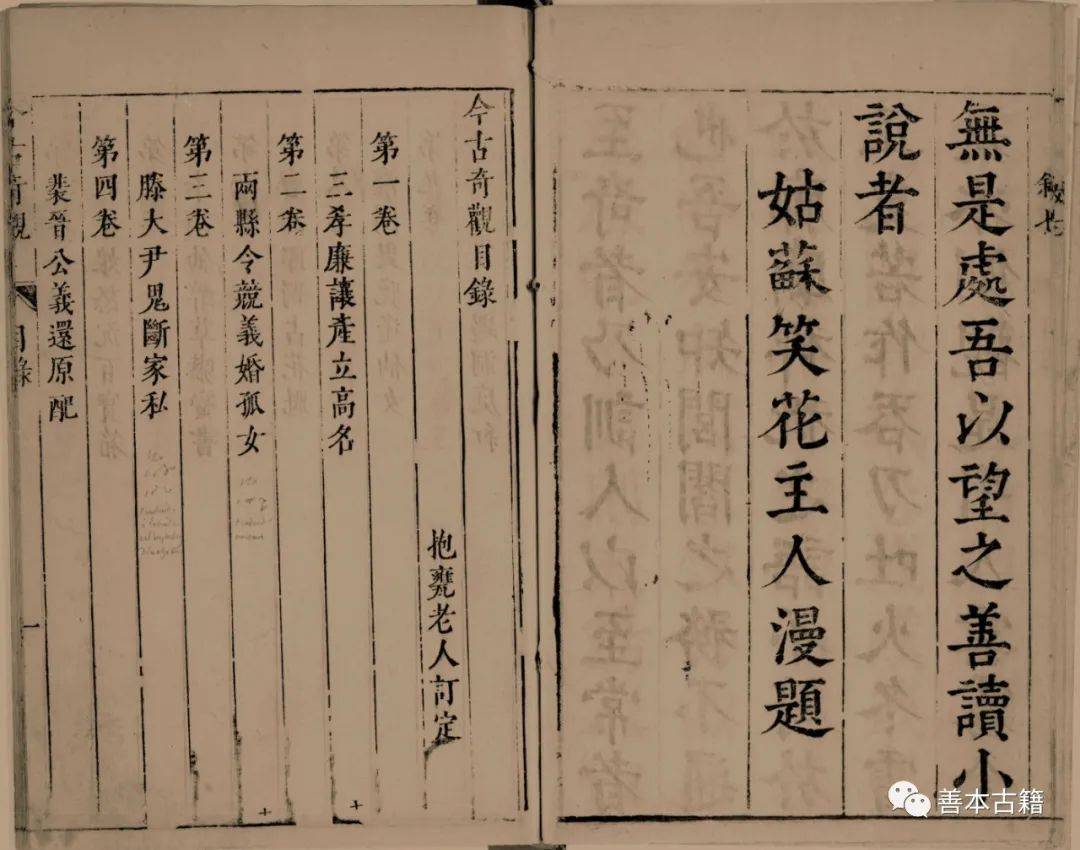 無是處吾以望之善讀小
說者
姑蘇笑花主人漫題
今古奇觀目錄
抱甕老人訂定
第一卷
三孝廉讓產立高名
第二卷
兩縣令競義婚孤女
第三卷
滕大尹鬼斷家私
第四卷
裴晉公義還原配
今古奇觀
目錄
一
善本古籍